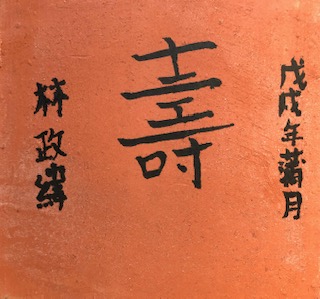 戊戌年蒲月
壽
林政緯